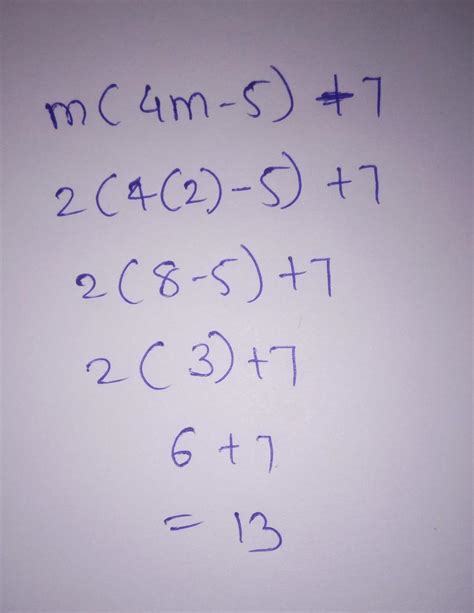 m(4m-5)+7
2(4(2)-5)+7
2(8-5)+7
2(3)+7
6+7
=13